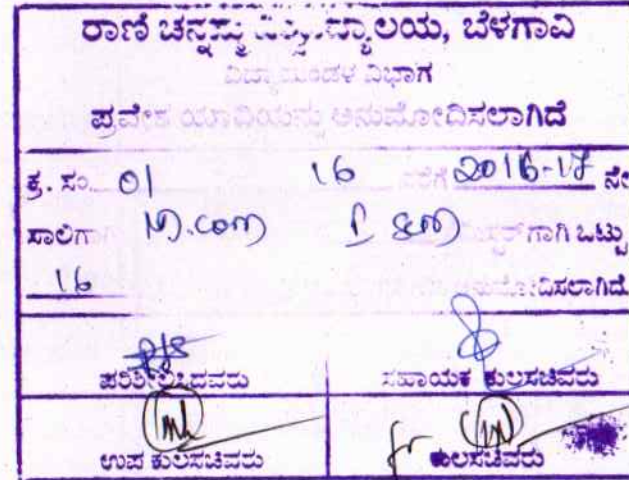 ರಾಣಿ ಚನ್ನಮ್ಮ ವಿಶ್ವವಿದ್ಯಾಲಯ, ಬೆಳಗಾವಿ
ವಿದ್ಯಾಮಂಡಳ ವಿಭಾಗ
ಪ್ರವೇಶ ಯಾದಿಯನ್ನು ಅನುಮೋದಿಸಲಾಗಿದೆ
ಕ್ರ. ಸಂ. 01 16 ವರೆಗೆ 2016-17 ನೇ
ಸಾಲಿಗಾಗಿ M.com I sem ಸೆಮಿಸ್ಟರ್‌ಗಾಗಿ ಒಟ್ಟು
16 ಅನುಮೋದಿಸಲಾಗಿದೆ.
ಪರಿಶೀಲಿಸಿದವರು ಸಹಾಯಕ ಕುಲಸಚಿವರು
ಉಪ ಕುಲಸಚಿವರು ಕುಲಸಚಿವರು